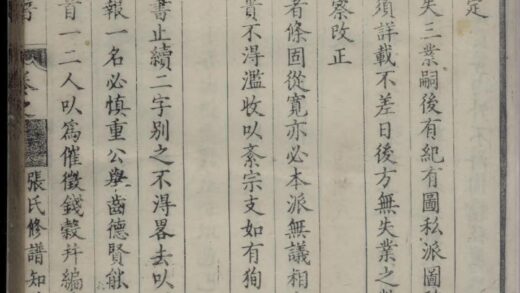 定
失三業嗣後有紀有圖私派圖
須詳載不差日後方無失業之
察改正
者條固從寬亦必本派無議相
貴不得濫收以紊宗支如有狥
書止續二字別之不得畧去以
報一名必慎重公舉齒德賢能
首一二人以為催徵錢穀幷編
卷之 張氏修譜知